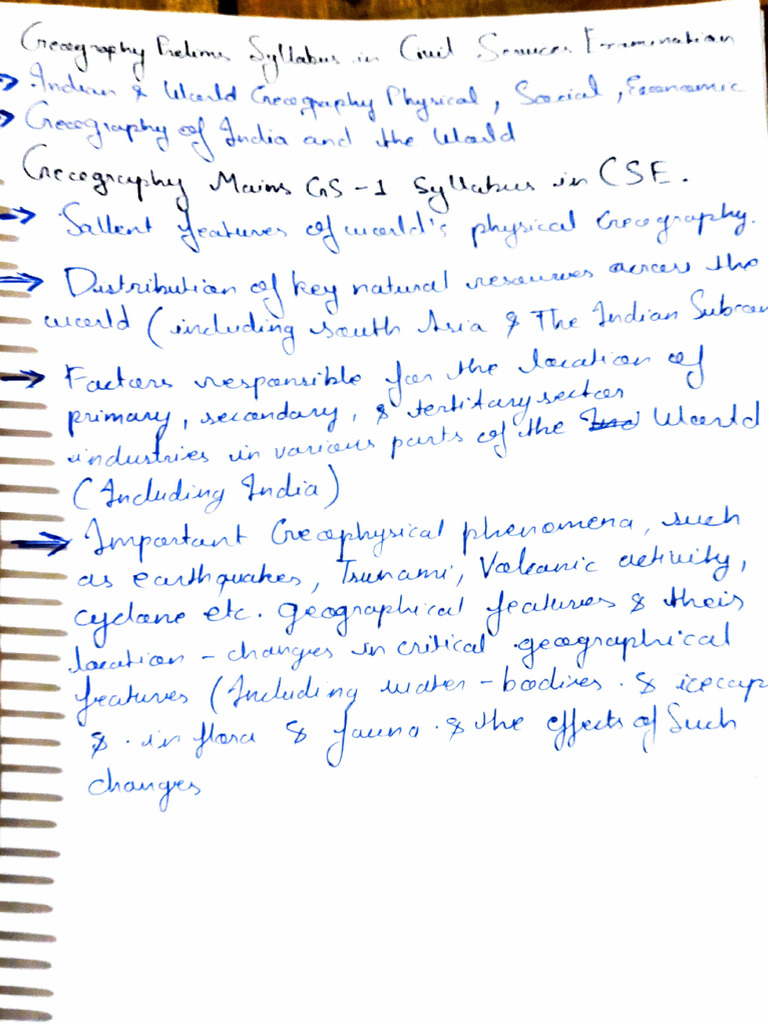 Geography Prelims Syllabus in Civil Services Examination
→ Indian & World Geography Physical, Social, Economic
→ Geography of India and the World
Geography Mains GS-1 Syllabus in CSE.
→ Salient features of world's physical Geography.
→ Distribution of key natural resources across the
world (including south Asia & The Indian Subcon
→ Factors responsible for the location of
primary, secondary, & tertitary sector
industries in various parts of the Ind World
(Including India)
→ Important Geophysical phenomena, such
as earthquakes, Tsunami, Volcanic activity,
cyclone etc. geographical features & their
location - changes in critical geographical
features (Including water-bodies. & icecap
& . in flora & fauna . & the effects of Such
changes